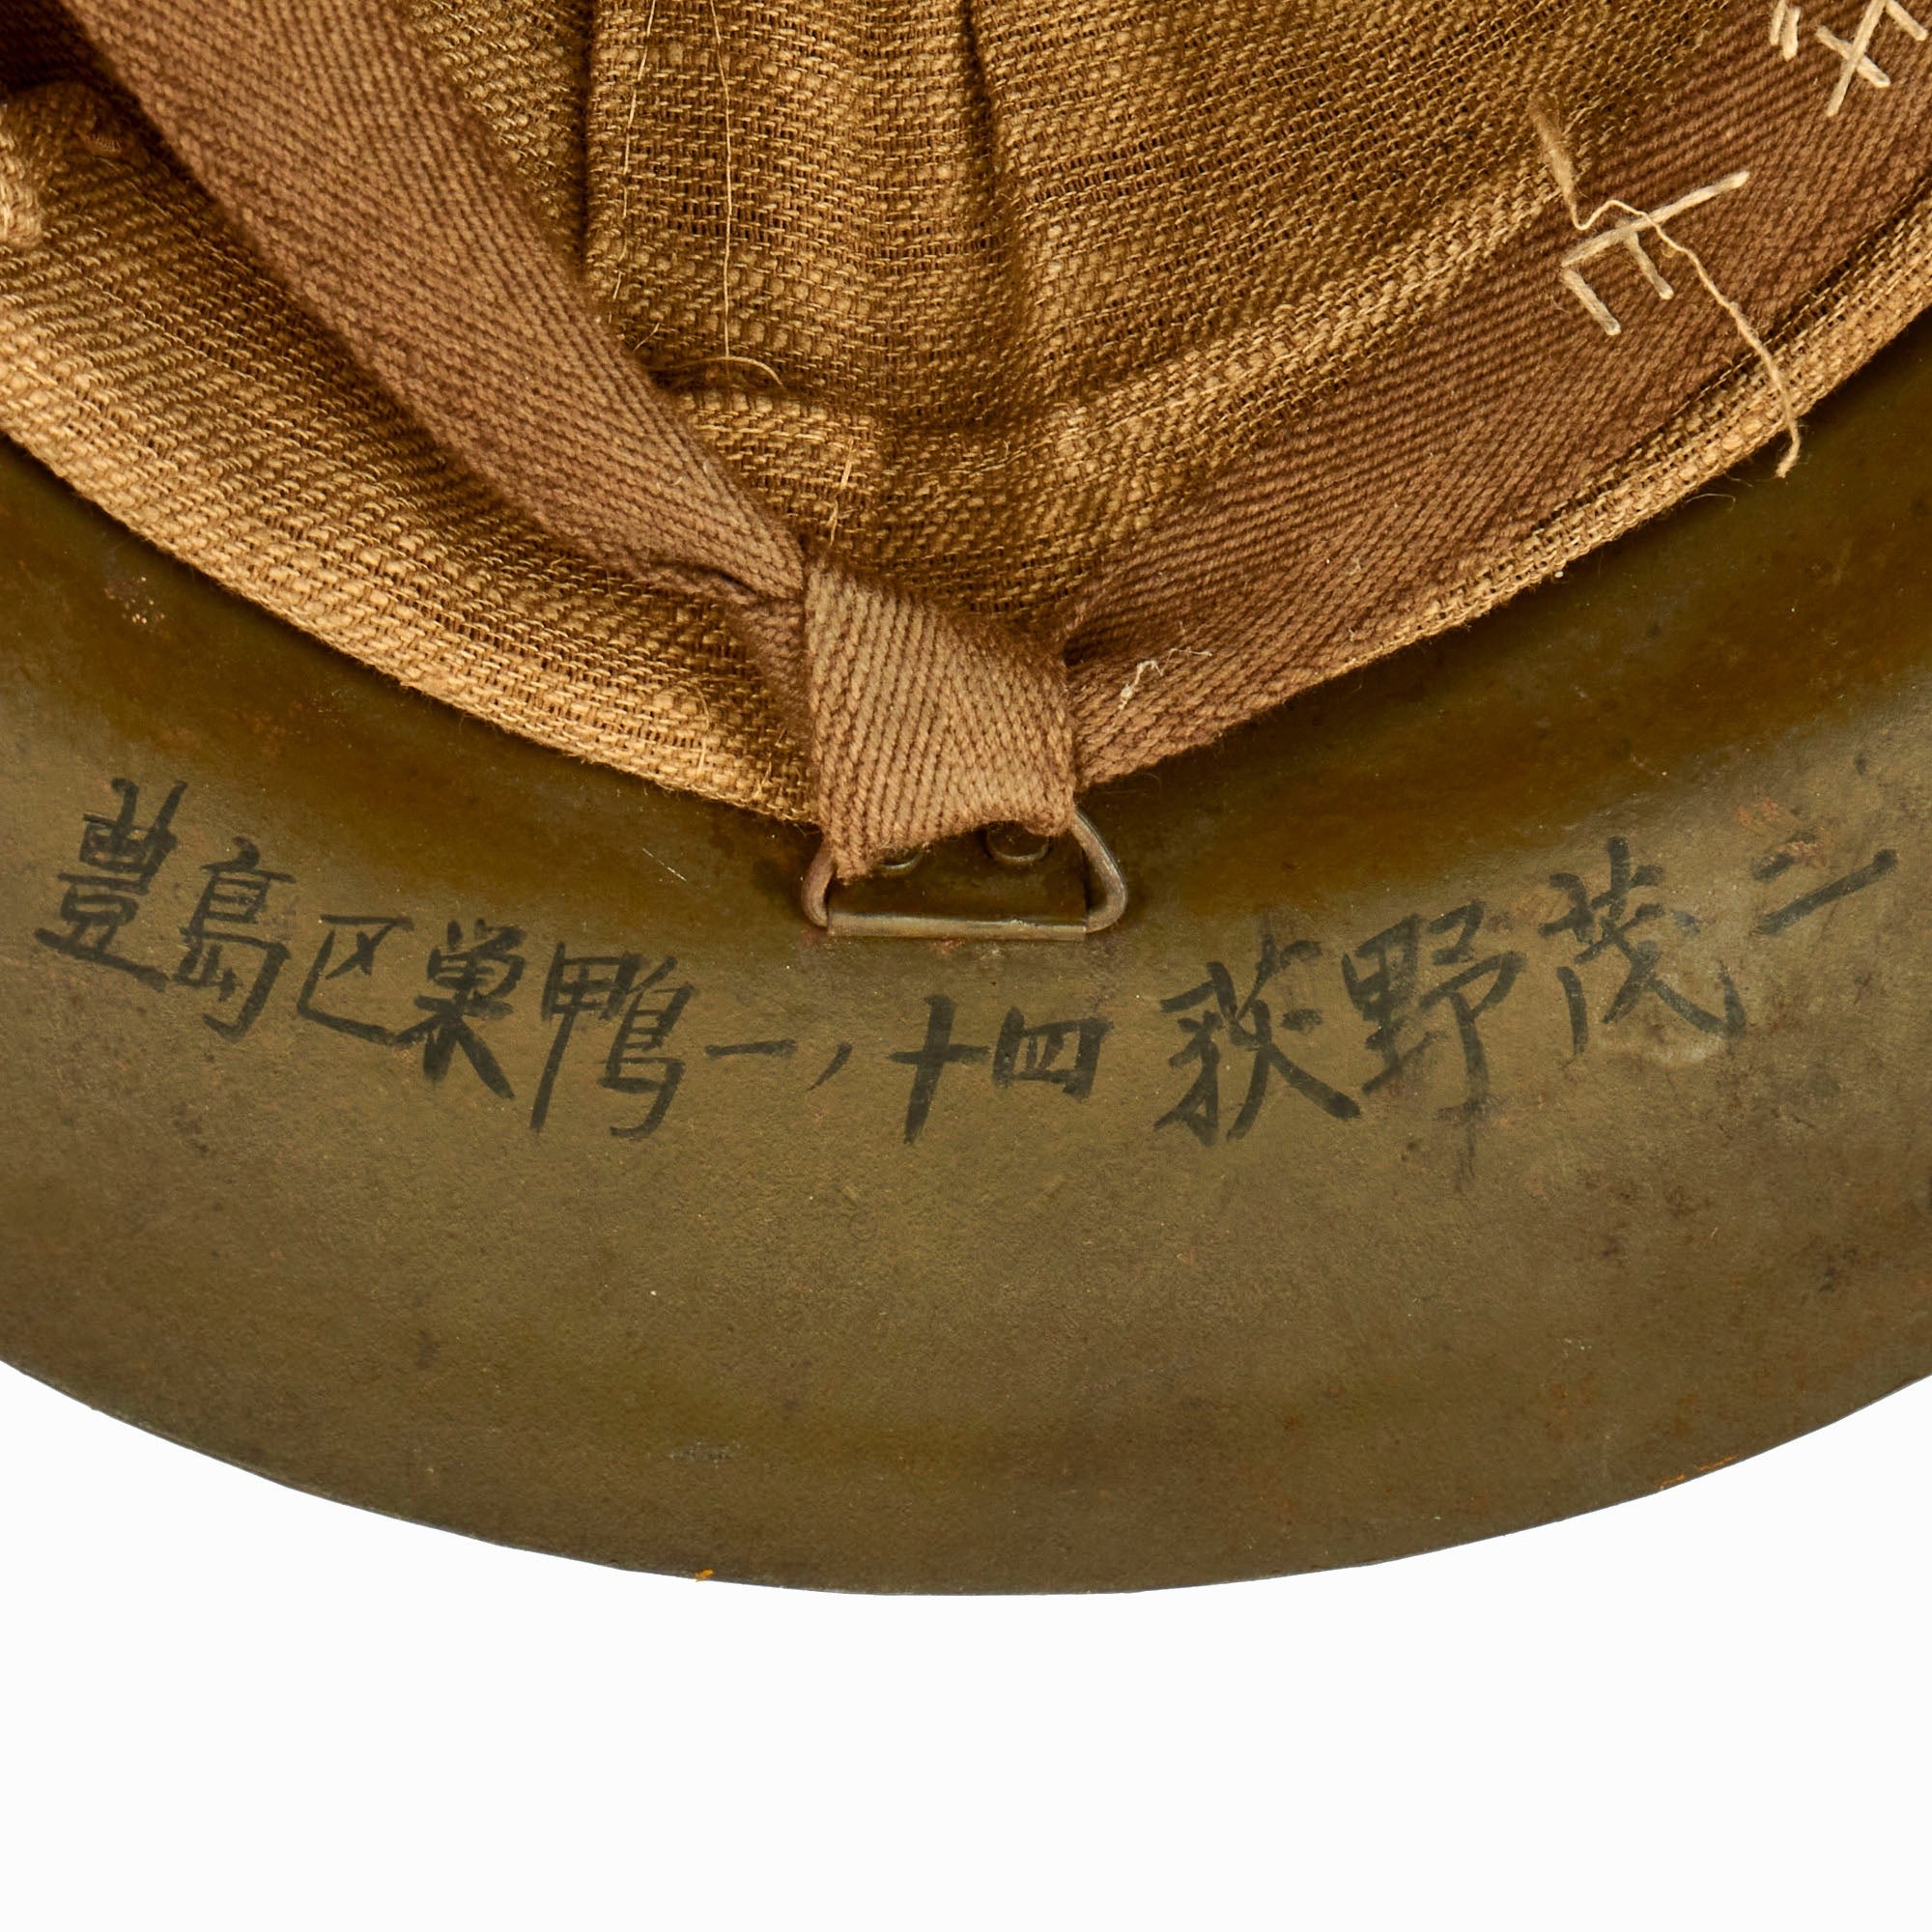 豊島区巣鴨一ノ十四 荻野茂二